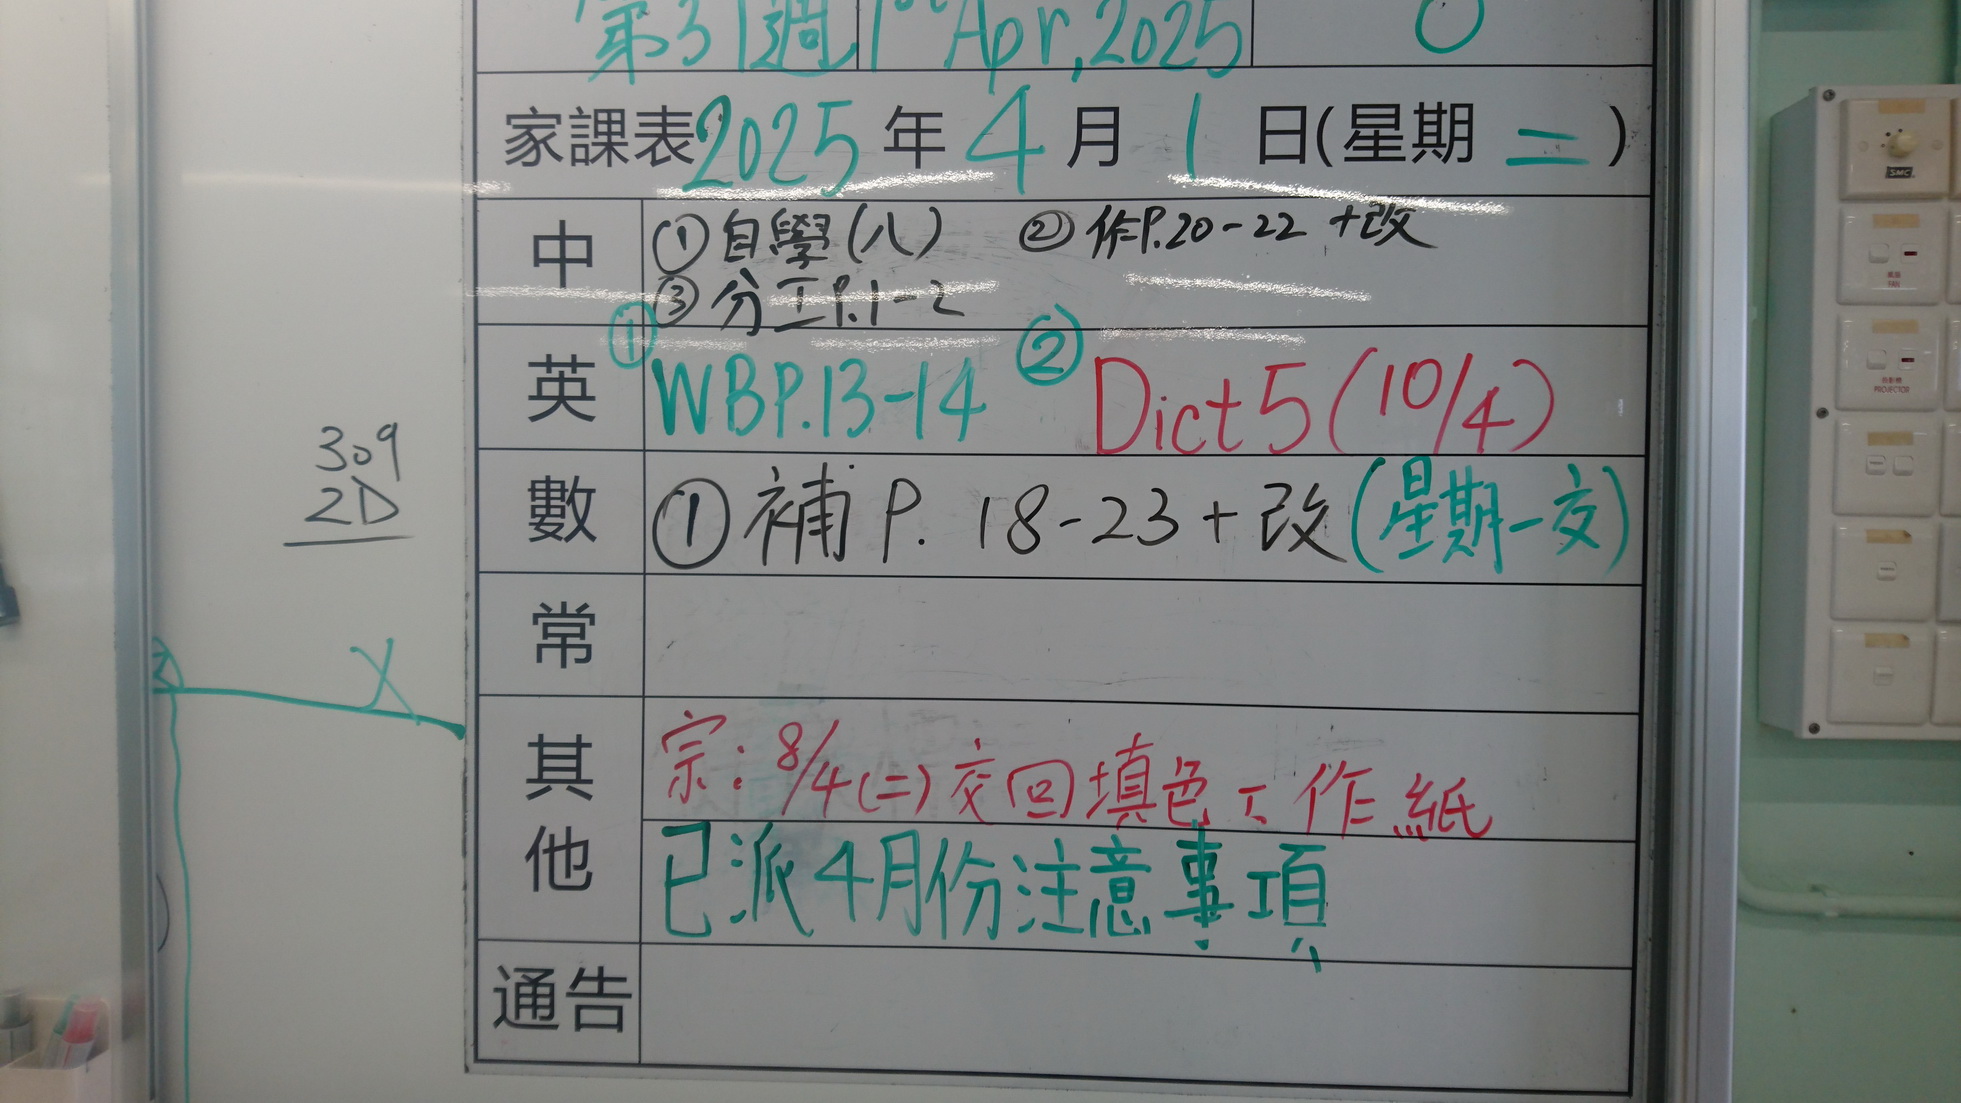 第31週 1st Apr, 2025
家課表 2025 年 4 月 1 日(星期 二)
中 ① 自學(八) ② 作P.20-22 +改
③ 分工P.1-2
英 ① WB P.13-14 ② Dict 5 (10/4)
數 ① 補 P. 18-23+改(星期一交)
常
其他 宗:8/4(二)交回填色工作紙
已派4月份注意事項
通告
309
2D
X
SMC
FAN
投影機
PROJECTOR